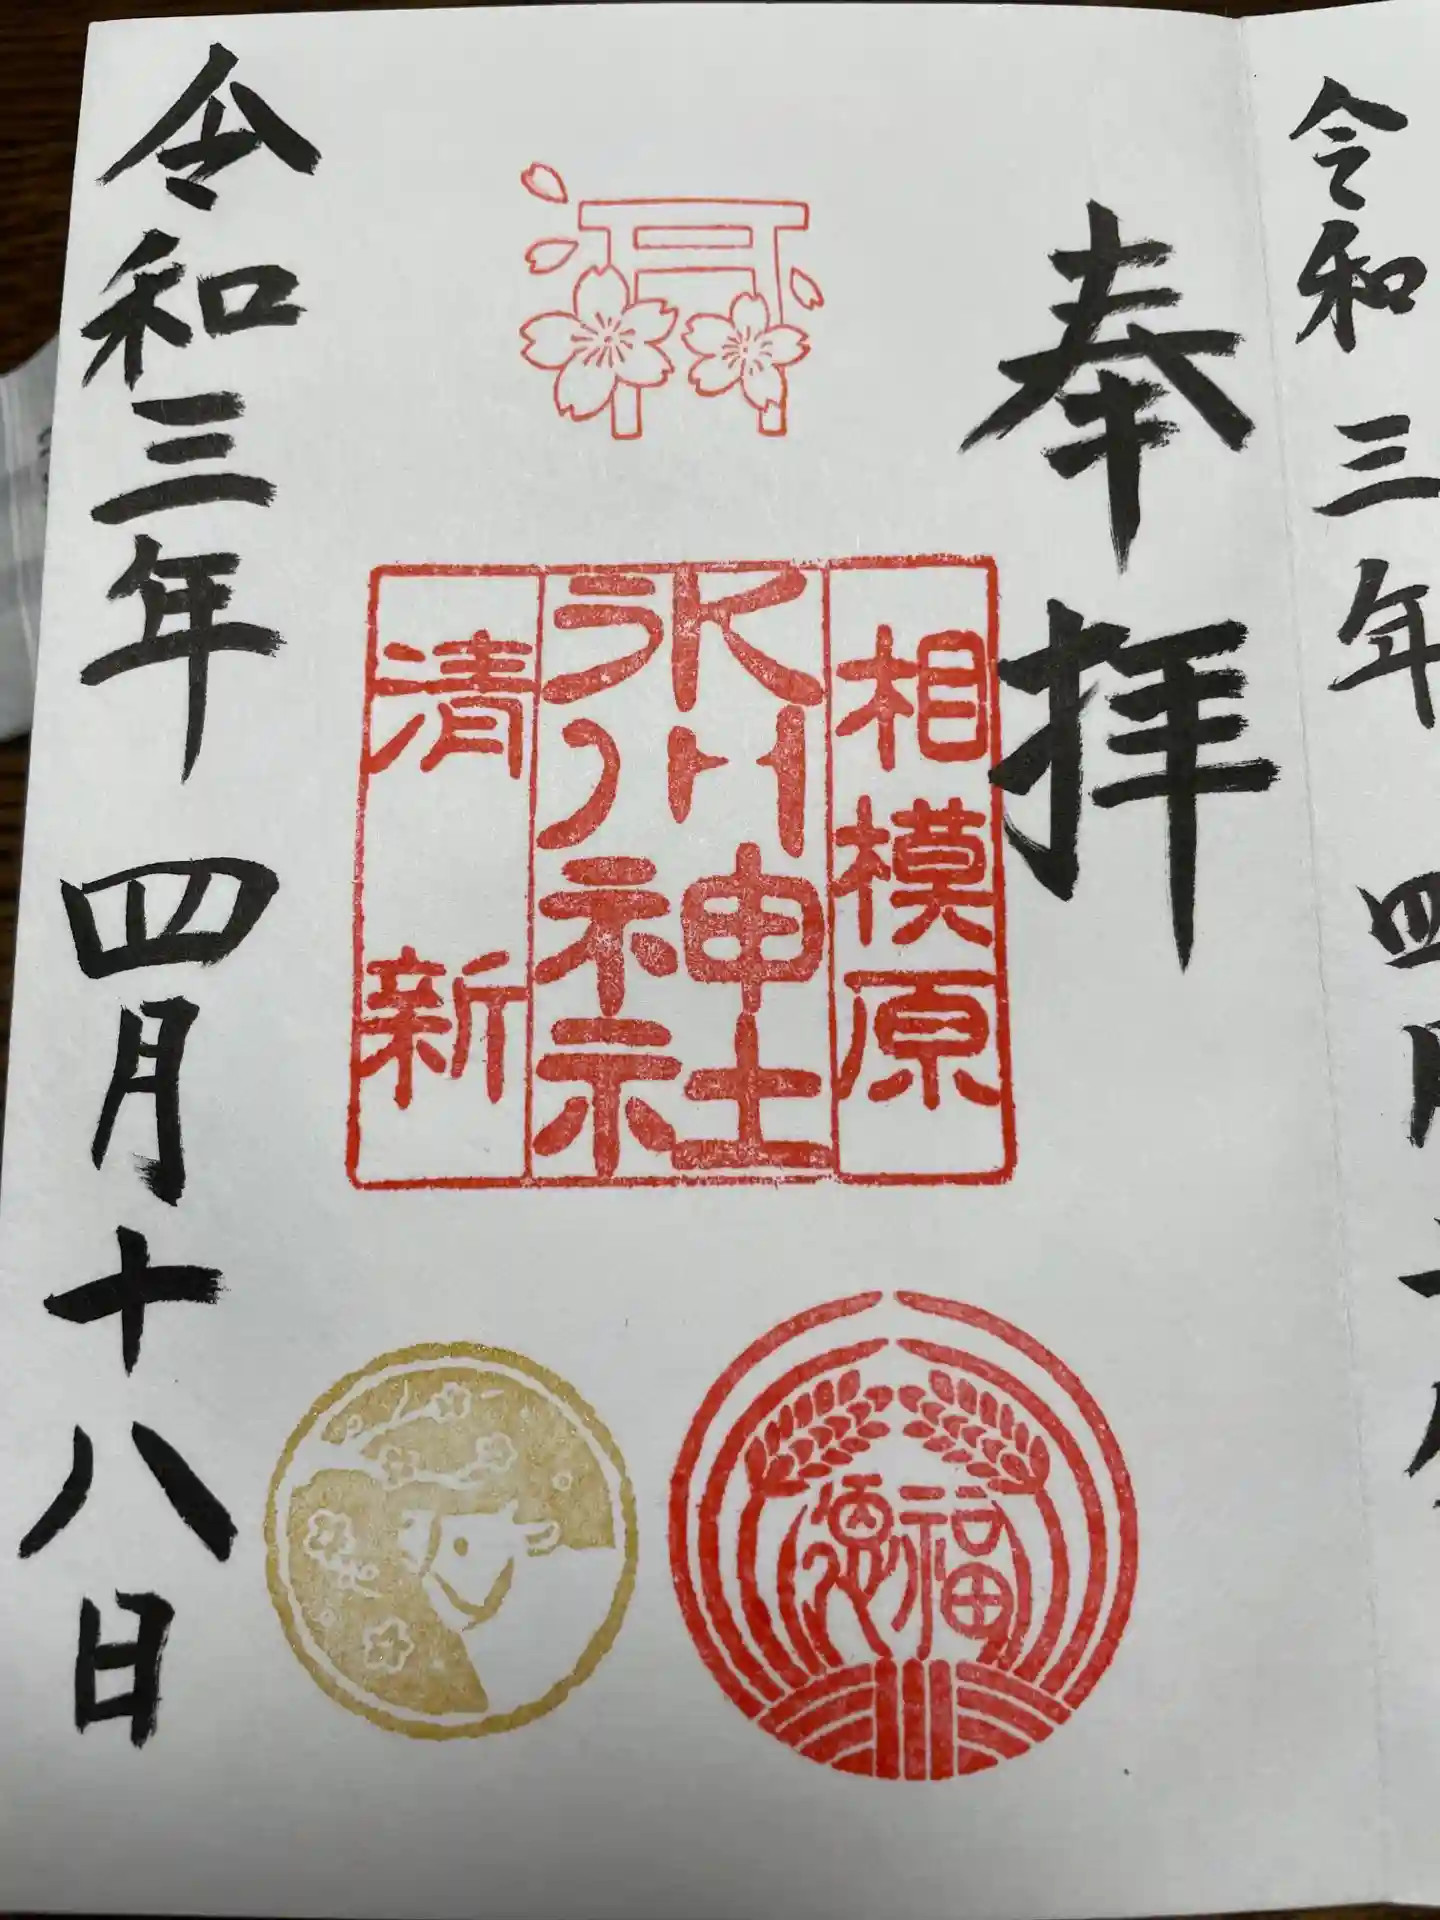 奉拝
相模原
氷川神社
清新
福
令和三年 四月十八日
令和三年 四月十